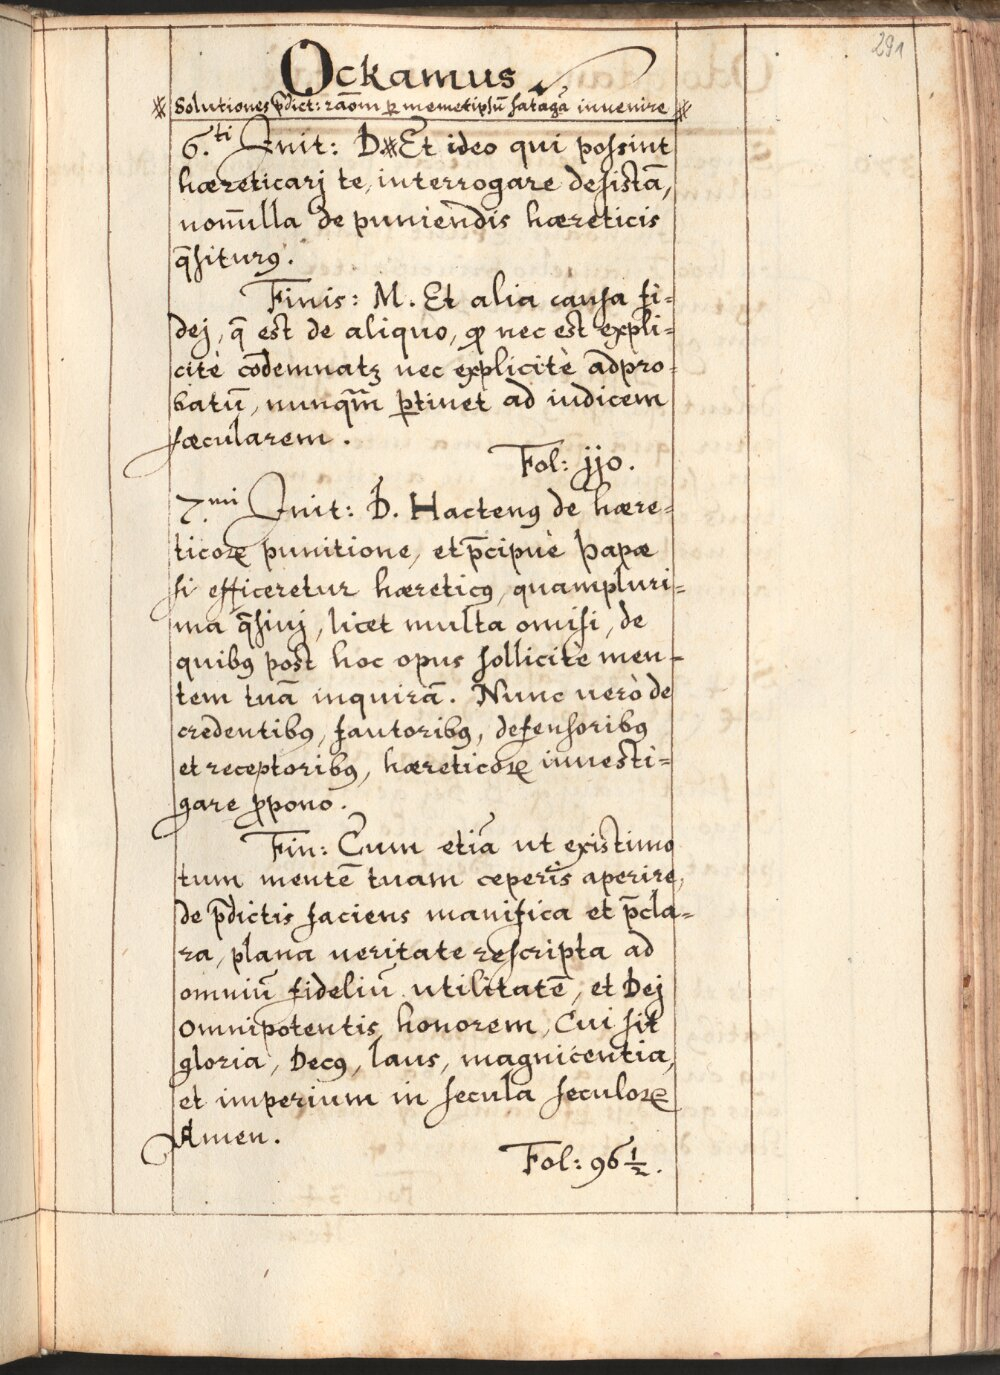 291
Ockamus
※ Solutiones p̄dict: raōm ꝑ memetipsū satagā invenire ※
6.ti Init: D※Et ideo qui possint
hæreticarj te, interrogare desistā,
nonnulla de puniendis hæreticis
q̄siturꝰ.
Finis: M. Et alia causa fi=
dej, q̄ est de aliquo, ꝙ nec est expli=
citè cōdemnatꝫ nec explicitè adpro=
batū, nunqm̄ ꝑtinet ad iudicem
sæcularem.
Fol: jj0.
7.mi Init: D. Hactenꝰ de hære=
ticoꝝ punitione, et p̄cipuè Papæ
si efficeretur hæreticꝰ, quampluri=
ma q̄sivj, licet multa omisi, de
quibꝰ post hoc opus sollicitè men=
tem tuā inquirā. Nunc verò de
credentibꝰ, fautoribꝰ, defensoribꝰ
et receptoribꝰ, hæreticoꝝ investi=
gare ꝓpono.
Fin: Cum etiā ut existimo
tum mentē tuam ceperis aperire,
de p̄dictis faciens manifica et p̄cla=
ra, plana veritate rescripta ad
omniū fideliū utilitatē, et Dej
omnipotentis honorem, Cui sit
gloria, Decꝰ, laus, magnicentia,
et imperium in secula seculoꝝ
Amen.
Fol: 96 1/2.